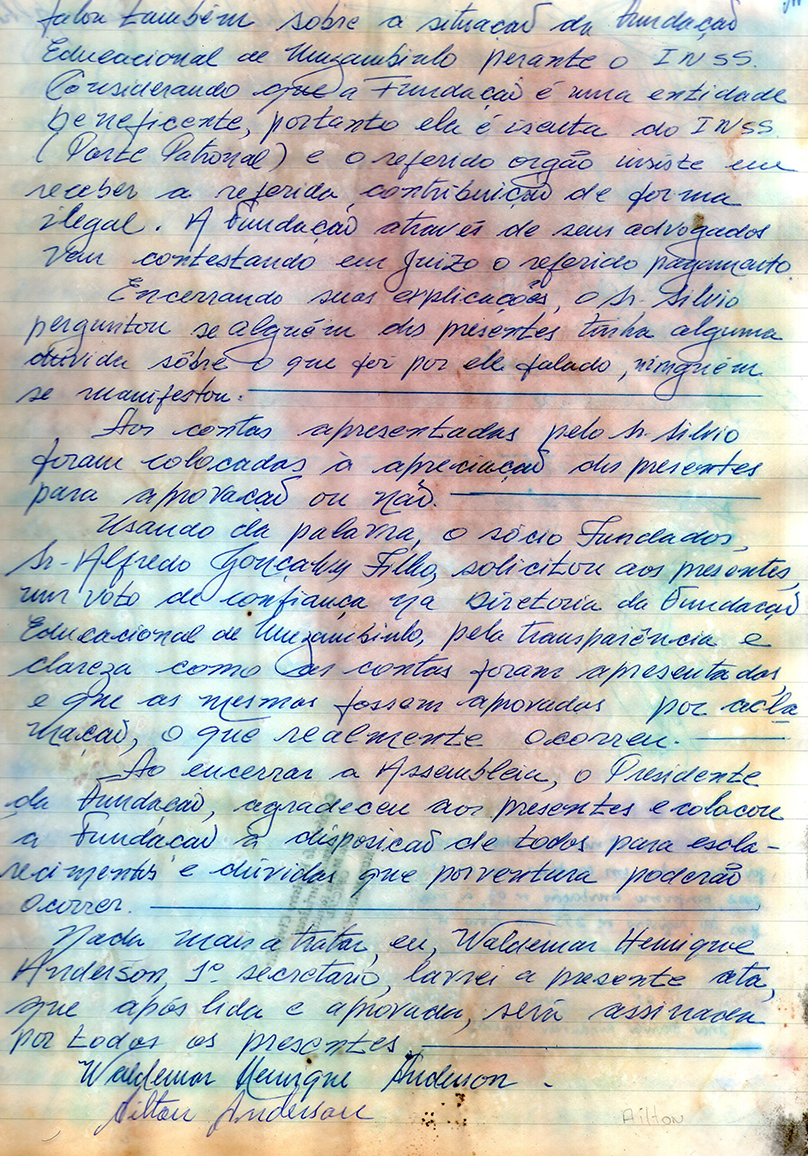 falou também sobre a situação da Fundação
Educacional de Muzambinho perante o INSS.
Considerando que a Fundação é uma entidade
beneficente, portanto ela é isenta do INSS
(Parte Patronal) e o referido orgão insiste em
receber a referida contribuição de forma
ilegal. A Fundação através de seus advogados
vem contestando em Juizo o referido pagamento
Encerrando suas explicações, o Sr. Silvio
perguntou se alguém dos presentes tinha alguma
dúvida sôbre o que foi por ele falado, ninguém
se manifestou.
As contas apresentadas pelo Sr. Silvio
foram colocadas à apreciação dos presentes
para aprovação ou não.
Usando da palavra, o sócio Fundador,
Sr. Alfredo Gonçalves Filho, solicitou aos presentes,
um voto de confiança na Diretoria da Fundação
Educacional de Muzambinho, pela transparência e
clareza como as contas foram apresentadas,
e que as mesmas fossem aprovadas por acla
mação, o que realmente ocorreu.
Ao encerrar a Assembleia, o Presidente
da Fundação, agradeceu aos presentes e colocou
a Fundação à disposição de todos para escla-
recimentos e dúvidas que porventura poderão
ocorrer.
Nada mais a tratar, eu, Waldemar Henrique
Anderson, 1º secretario, lavrei a presente ata,
que após lida e aprovada, será assinada
por todos os presentes.
Waldemar Henrique Anderson.
Ailton Anderson
Ailton